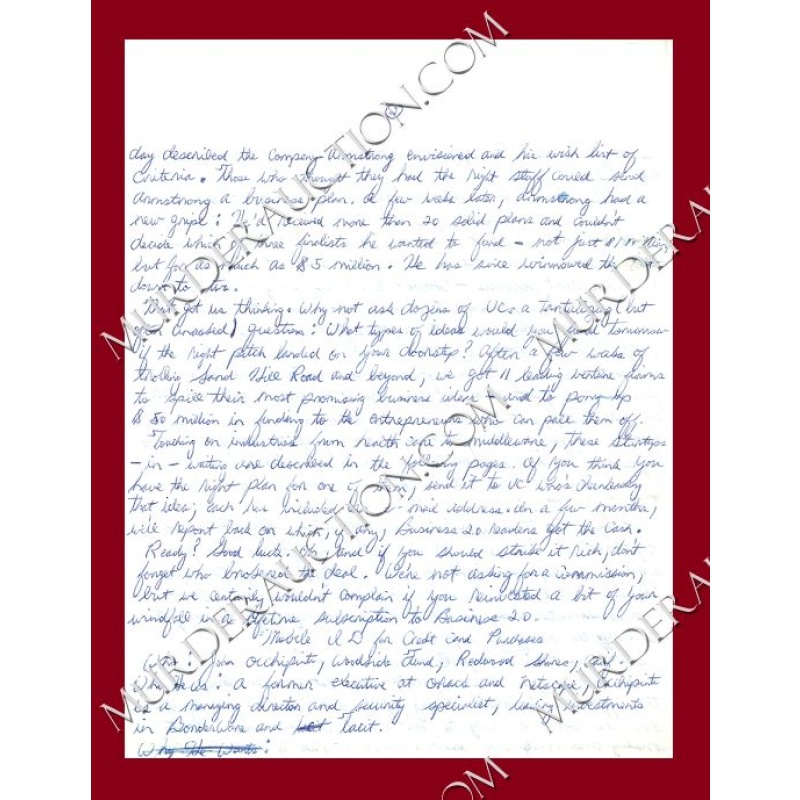 day described the Company Armstrong envisioned and his wish list of
Criteria. Those who thought they had the right stuff could send
Armstrong a business plan. A few weeks later, Armstrong had a
new gripe: He'd received more than 20 solid plans and couldn't
decide which of three finalists he wanted to fund - not just $1 million
but for as much as $5 million. He has since winnowed the
down to
That got us thinking. Why not ask dozens of VCs a tantalizing (but
question: What types of ideas would you fund tomorrow
if the right pitch landed on your doorstep? After a few weeks of
trolling Sand Hill Road and beyond, we got 11 leading venture firms
to spill their most promising business ideas - and to pony up
$50 million in funding to the entrepreneurs who can pull them off.
Touching on industries from health care to middleware, these startups
- in - waiting are described in the following pages. If you think you
have the right plan for one of them, send it to VC who's championing
that idea; each has included - mail address. In a few months,
we'll report back on which, if any, Business 2.0 readers got the cash.
Ready? Good luck. and if you should strike it rich, don't
forget who brokered the deal. We're not asking for a commission,
but we certainly wouldn't complain if you reinvested a bit of your
windfall in a lifetime subscription to Business 2.0.
"Mobile ID for Credit card Purchases
Who: John Occhipinti, Woodside Fund, Redwood Shores, Calif.
Who He is: a former executive at Oracle and Netscape, Occhipinti
is a managing director and security specialist, leading investments
in BorderWare and Tacit.
Why He Wants:
MURDERAUCTION.COM
MURDERAUCTION.COM
MURDERAUCTION.COM
MURDERAUCTION.COM